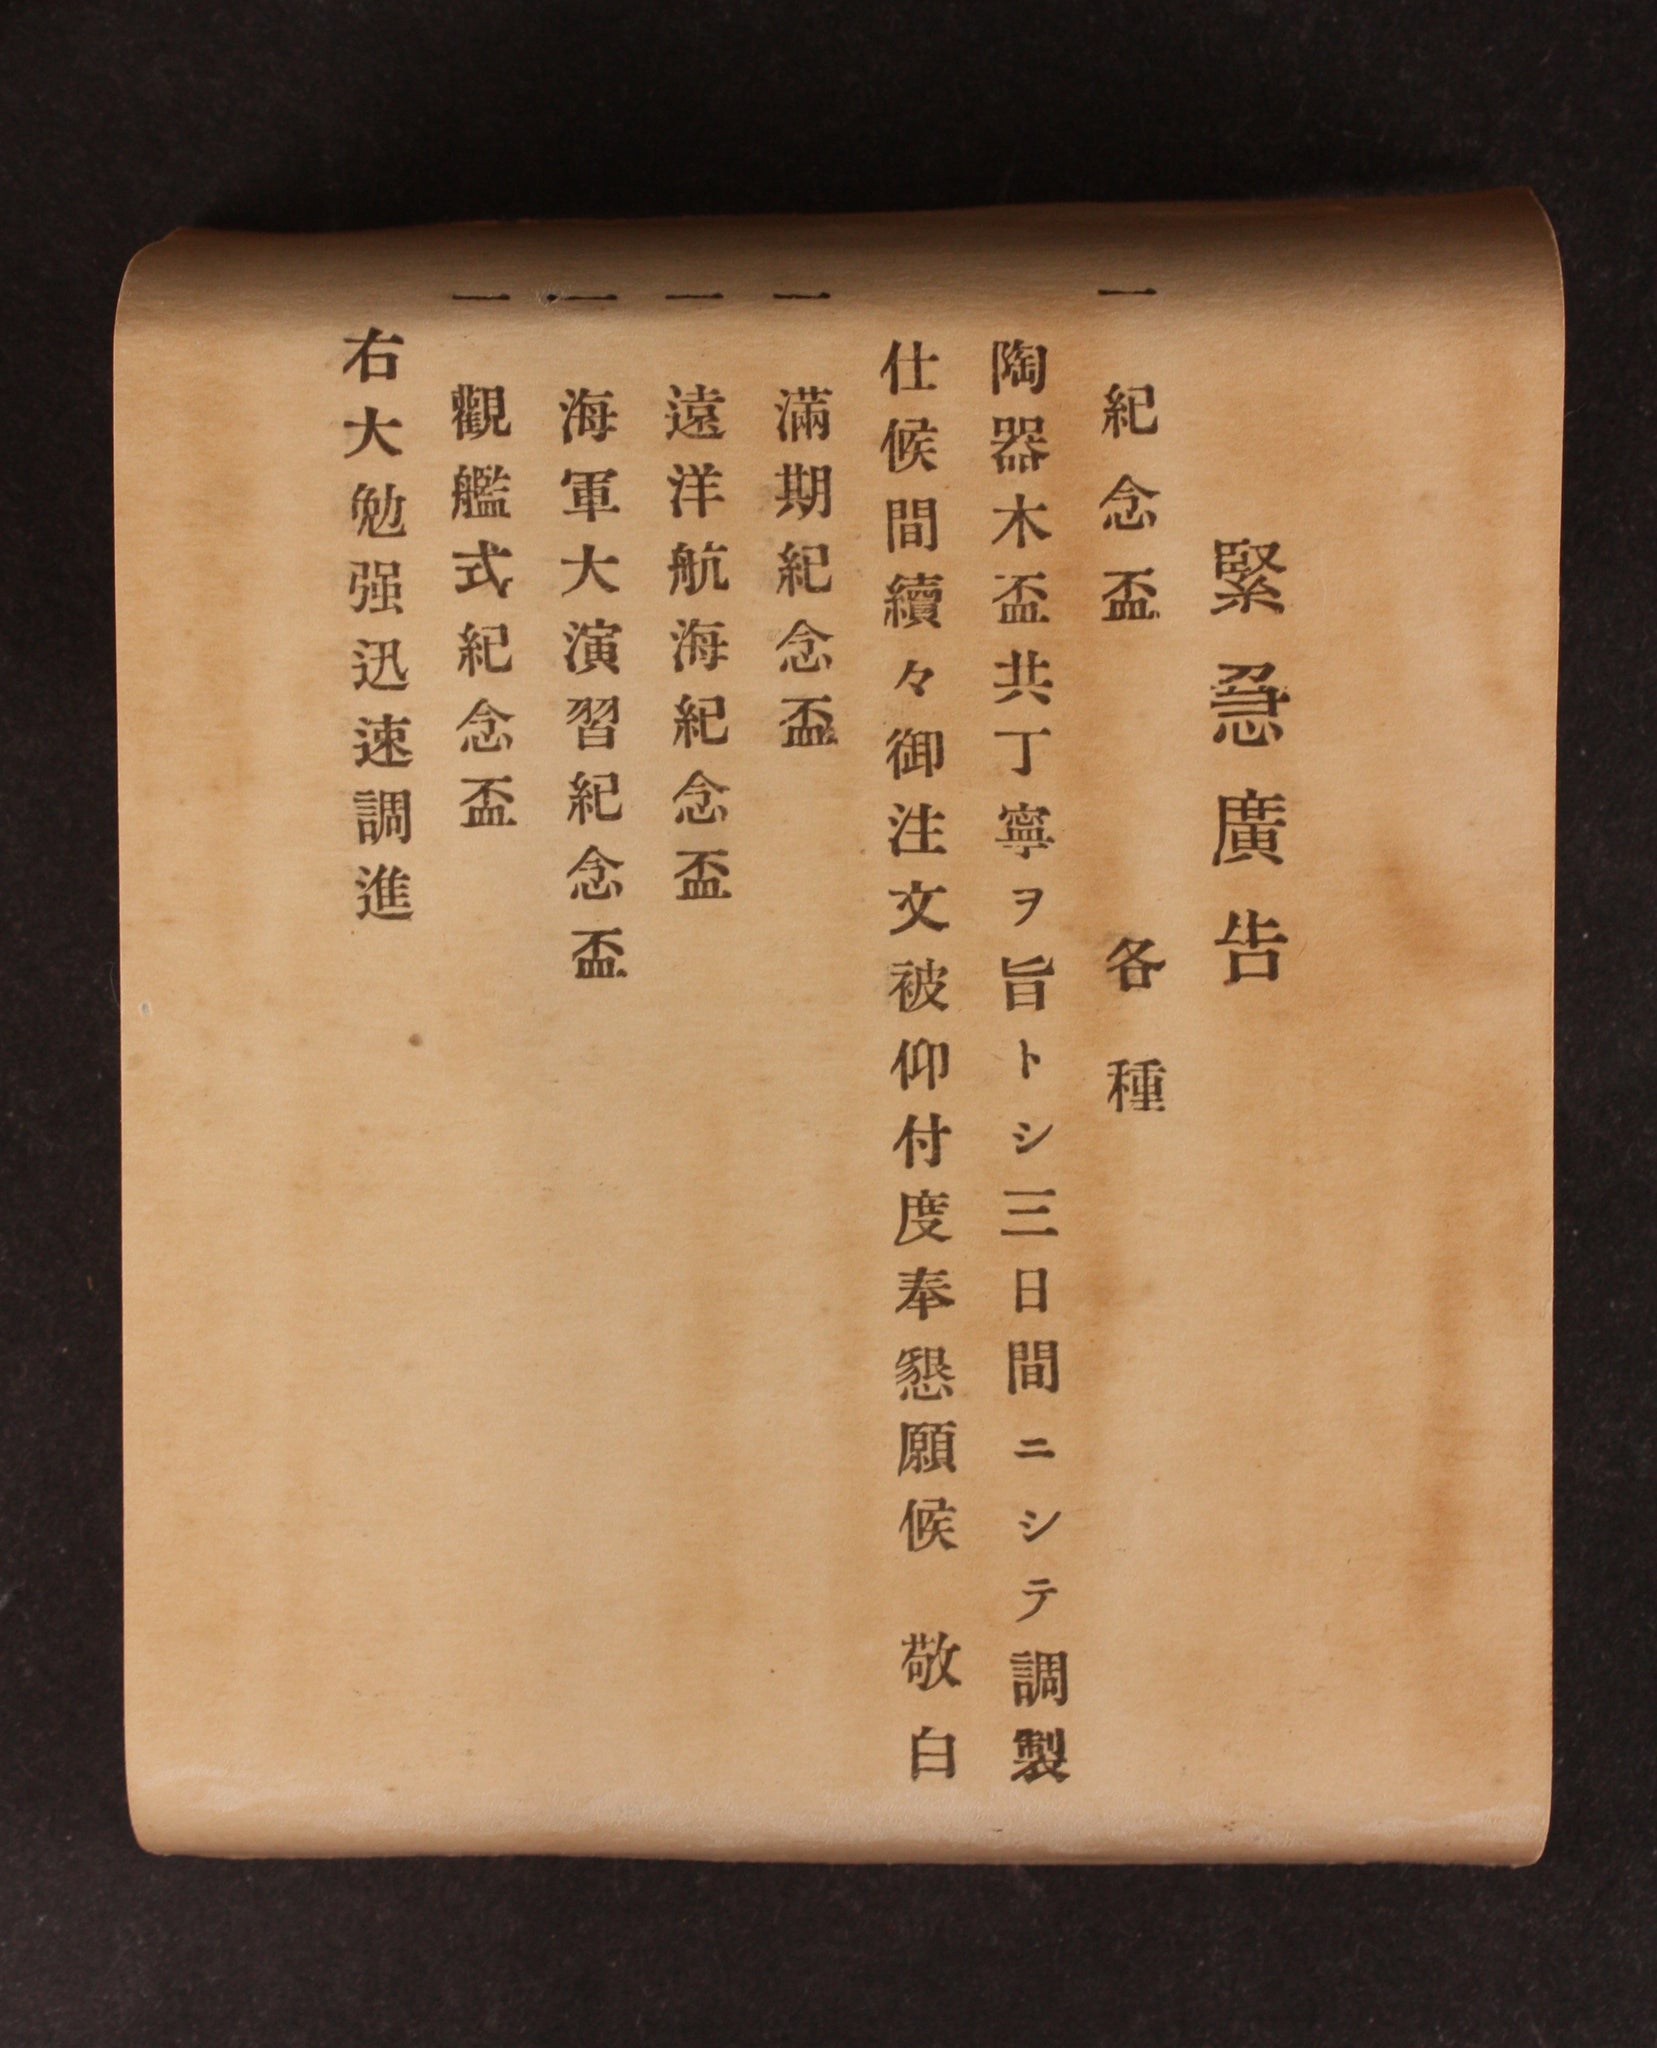 緊急廣告
一 紀念盃 各種
陶器木盃共丁寧ヲ旨トシ三日間ニシテ調製
仕候間續々御注文被仰付度奉懇願候 敬白
一 滿期紀念盃
一 遠洋航海紀念盃
一 海軍大演習紀念盃
一 觀艦式紀念盃
右大勉强迅速調進